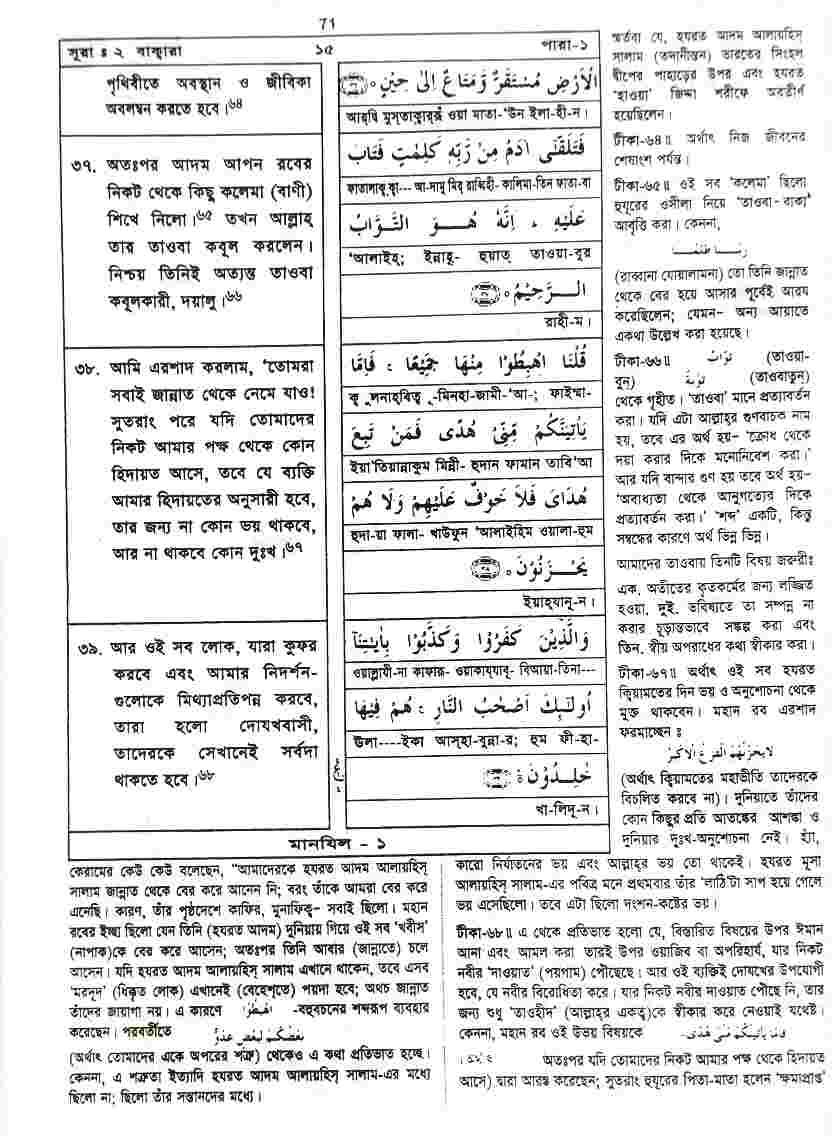 71
সূরা ঃ ২ বাক্বারা
১৫
পারা-১
পৃথিবীতে অবস্থান ও জীবিকা
অবলম্বন করতে হবে।৬৪
৩৭. অতঃপর আদম আপন রবের
নিকট থেকে কিছু কলেমা (বাণী)
শিখে নিলো।৬৫ তখন আল্লাহ্
তার তাওবা কবূল করলেন।
নিশ্চয় তিনিই অত্যন্ত তাওবা
কবূলকারী, দয়ালু।৬৬
৩৮. আমি এরশাদ করলাম, ‘তোমরা
সবাই জান্নাত থেকে নেমে যাও!
সুতরাং পরে যদি তোমাদের
নিকট আমার পক্ষ থেকে কোন
হিদায়ত আসে, তবে যে ব্যক্তি
আমার হিদায়তের অনুসারী হবে,
তার জন্য না কোন ভয় থাকবে,
আর না থাকবে কোন দুঃখ।৬৭
৩৯. আর ওই সব লোক, যারা কুফর
করবে এবং আমার নিদর্শন-
গুলোকে মিথ্যাপ্রতিপন্ন করবে,
তারা হলো দোযখবাসী,
তাদেরকে সেখানেই সর্বদা
থাকতে হবে।৬৮
الْاَرْضِ مُسْتَقَرٌّ وَّمَتَاعٌ اِلٰى حِيْنٍ ۝
আর্‌দ্বি মুস্‌তাক্বার্‌রুঁ ওয়া মাতা-‘উন ইলা-হী-ন।
فَتَلَقّٰى اٰدَمُ مِنْ رَّبِّهٖ كَلِمٰتٍ فَتَابَ
ফাতালাক্বক্বা--- আ-দামু মির্ রাব্বিহী- কালিমা-তিন ফাতা-বা
عَلَيْهِ ، اِنَّهٗ هُوَ التَّوَّابُ
‘আলাইহ্; ইন্নাহূ- হুয়াত্ তাওয়া-বুর
الرَّحِيْمُ ۝
রাহী-ম।
قُلْنَا اهْبِطُوْا مِنْهَا جَمِيْعًا ، فَاِمَّا
ক্বুলনাহ্‌বিত্বূ-মিনহা-জামী-‘আ-; ফাইম্মা-
يَاْتِيَنَّكُمْ مِّنِّىْ هُدًى فَمَنْ تَبِعَ
ইয়া’তিয়ান্নাকুম মিন্নী- হুদান ফামান তাবি‘আ
هُدَاىَ فَلَا خَوْفٌ عَلَيْهِمْ وَلَا هُمْ
হুদা-য়া ফালা- খাউফুন ‘আলাইহিম ওয়ালা-হুম
يَحْزَنُوْنَ ۝
ইয়াহ্‌যানূ-ন।
وَالَّذِيْنَ كَفَرُوْا وَكَذَّبُوْا بِاٰيٰتِنَآ
ওয়াল্লাযী-না কাফারূ- ওয়াকায্‌যাবূ- বিআয়া-তিনা---
اُولٰٓئِكَ اَصْحٰبُ النَّارِ ، هُمْ فِيْهَا
উলা----ইকা আস্‌হা-বুন্না-র; হুম ফী-হা-
خٰلِدُوْنَ ۝
খা-লিদূ-ন।
মানযিল - ১
অর্তব্য যে, হযরত আদম আলায়হিস্
সালাম (তদানীন্তন) ভারতের সিংহল
দ্বীপের পাহাড়ের উপর এবং হযরত
‘হাওয়া’ জিদ্দা শরীফে অবতীর্ণ
হয়েছিলেন।
টীকা-৬৪॥ অর্থাৎ নিজ জীবনের
শেষাংশ পর্যন্ত।
টীকা-৬৫॥ ওই সব ‘কলেমা’ ছিলো
হুযূরের ওসীলা নিয়ে ‘তাওবা-বাক্য’
আবৃত্তি করা। কেননা,
ربنا ظلمنا
(রাব্বানা যোয়ালামনা) তো তিনি জান্নাত
থেকে বের হয়ে আসার পূর্বেই আরয
করেছিলেন; যেমন- অন্য আয়াতে
একথা উল্লেখ করা হয়েছে।
টীকা-৬৬॥ تواب (তাওয়া-
বুন) توبة (তাওবাতুন)
থেকে গৃহীত। ‘তাওবা’ মানে প্রত্যাবর্তন
করা। যদি এটা আল্লাহ্‌র গুণবাচক নাম
হয়, তবে এর অর্থ হয়- ‘ক্রোধ থেকে
দয়া করার দিকে মনোনিবেশ করা।’
আর যদি বান্দার গুণ হয় তবে অর্থ হয়-
‘অবাধ্যতা থেকে আনুগত্যের দিকে
প্রত্যাবর্তন করা।’ ‘শব্দ’ একটি, কিন্তু
সম্বন্ধের কারণে অর্থ ভিন্ন ভিন্ন।
আমাদের তাওবায় তিনটি বিষয় জরুরীঃ
এক. অতীতের কৃতকর্মের জন্য লজ্জিত
হওয়া, দুই. ভবিষ্যতে তা সম্পন্ন না
করার চূড়ান্তভাবে সঙ্কল্প করা এবং
তিন. স্বীয় অপরাধের কথা স্বীকার করা।
টীকা-৬৭॥ অর্থাৎ ওই সব হযরত
ক্বিয়ামতের দিন ভয় ও অনুশোচনা থেকে
মুক্ত থাকবেন। মহান রব এরশাদ
ফরমাচ্ছেন ঃ
لايحزنهم الفزع الاكبر
(অর্থাৎ ক্বিয়ামতের মহাভীতি তাদেরকে
বিচলিত করবে না)। দুনিয়াতে তাঁদের
কোন কিছুর প্রতি আতঙ্কের আশঙ্কা ও
দুনিয়ার দুঃখ-অনুশোচনা নেই। হ্যাঁ,
কেরামের কেউ কেউ বলেছেন, “আমাদেরকে হযরত আদম আলায়হিস্
সালাম জান্নাত থেকে বের করে আনেন নি; বরং তাঁকে আমরা বের করে
এনেছি। কারণ, তাঁর পৃষ্ঠদেশে কাফির, মুনাফিক্ব- সবাই ছিলো। মহান
রবের ইচ্ছা ছিলো যেন তিনি (হযরত আদম) দুনিয়ায় গিয়ে ওই সব ‘খবীস’
(নাপাক)কে বের করে আসেন; অতঃপর তিনি আবার (জান্নাতে) চলে
আসেন। যদি হযরত আদম আলায়হিস্ সালাম এখানে থাকেন, তবে এসব
‘মরদূদ’ (ধিক্কৃত লোক) এখানেই (বেহেশ্‌তে) পয়দা হবে; অথচ জান্নাত
তাঁদের জায়গা নয়। এ কারণে اهبطوا -বহুবচনের শব্দরূপ ব্যবহার
করেছেন। পরবর্তীতে بعضكم لبعض عدو
(অর্থাৎ তোমাদের একে অপরের শত্রু) থেকেও এ কথা প্রতিভাত হচ্ছে।
কেননা, এ শত্রুতা ইত্যাদি হযরত আদম আলায়হিস্ সালাম-এর মধ্যে
ছিলো না; ছিলো তাঁর সন্তানদের মধ্যে।
কারো নির্যাতনের ভয় এবং আল্লাহ্‌র ভয় তো থাকেই। হযরত মূসা
আলায়হিস্ সালাম-এর পবিত্র মনে প্রথমবার তাঁর ‘লাঠি’টা সাপ হয়ে গেলে
ভয় এসেছিলো। তবে এটা ছিলো দংশন-কষ্টের ভয়।
টীকা-৬৮॥ এ থেকে প্রতিভাত হলো যে, বিস্তারিত বিষয়ের উপর ঈমান
আনা এবং আমল করা তারই উপর ওয়াজিব বা অপরিহার্য, যার নিকট
নবীর ‘দাওয়াত’ (পয়গাম) পৌঁছেছে। আর ওই ব্যক্তিই দোযখের উপযোগী
হবে, যে নবীর বিরোধিতা করে। যার নিকট নবীর দাওয়াত পৌঁছে নি, তার
জন্য শুধু ‘তাওহীদ’ (আল্লাহ্‌র একত্ব)কে স্বীকার করে নেওয়াই যথেষ্ট।
কেননা, মহান রব ওই উভয় বিষয়কে فاما ياتينكم منى هدى-
অতঃপর যদি তোমাদের নিকট আমার পক্ষ থেকে হিদায়ত
আসে) দ্বারা আরম্ভ করেছেন; সুতরাং হুযূরের পিতা-মাতা হলেন ‘ক্ষমাপ্রাপ্ত’